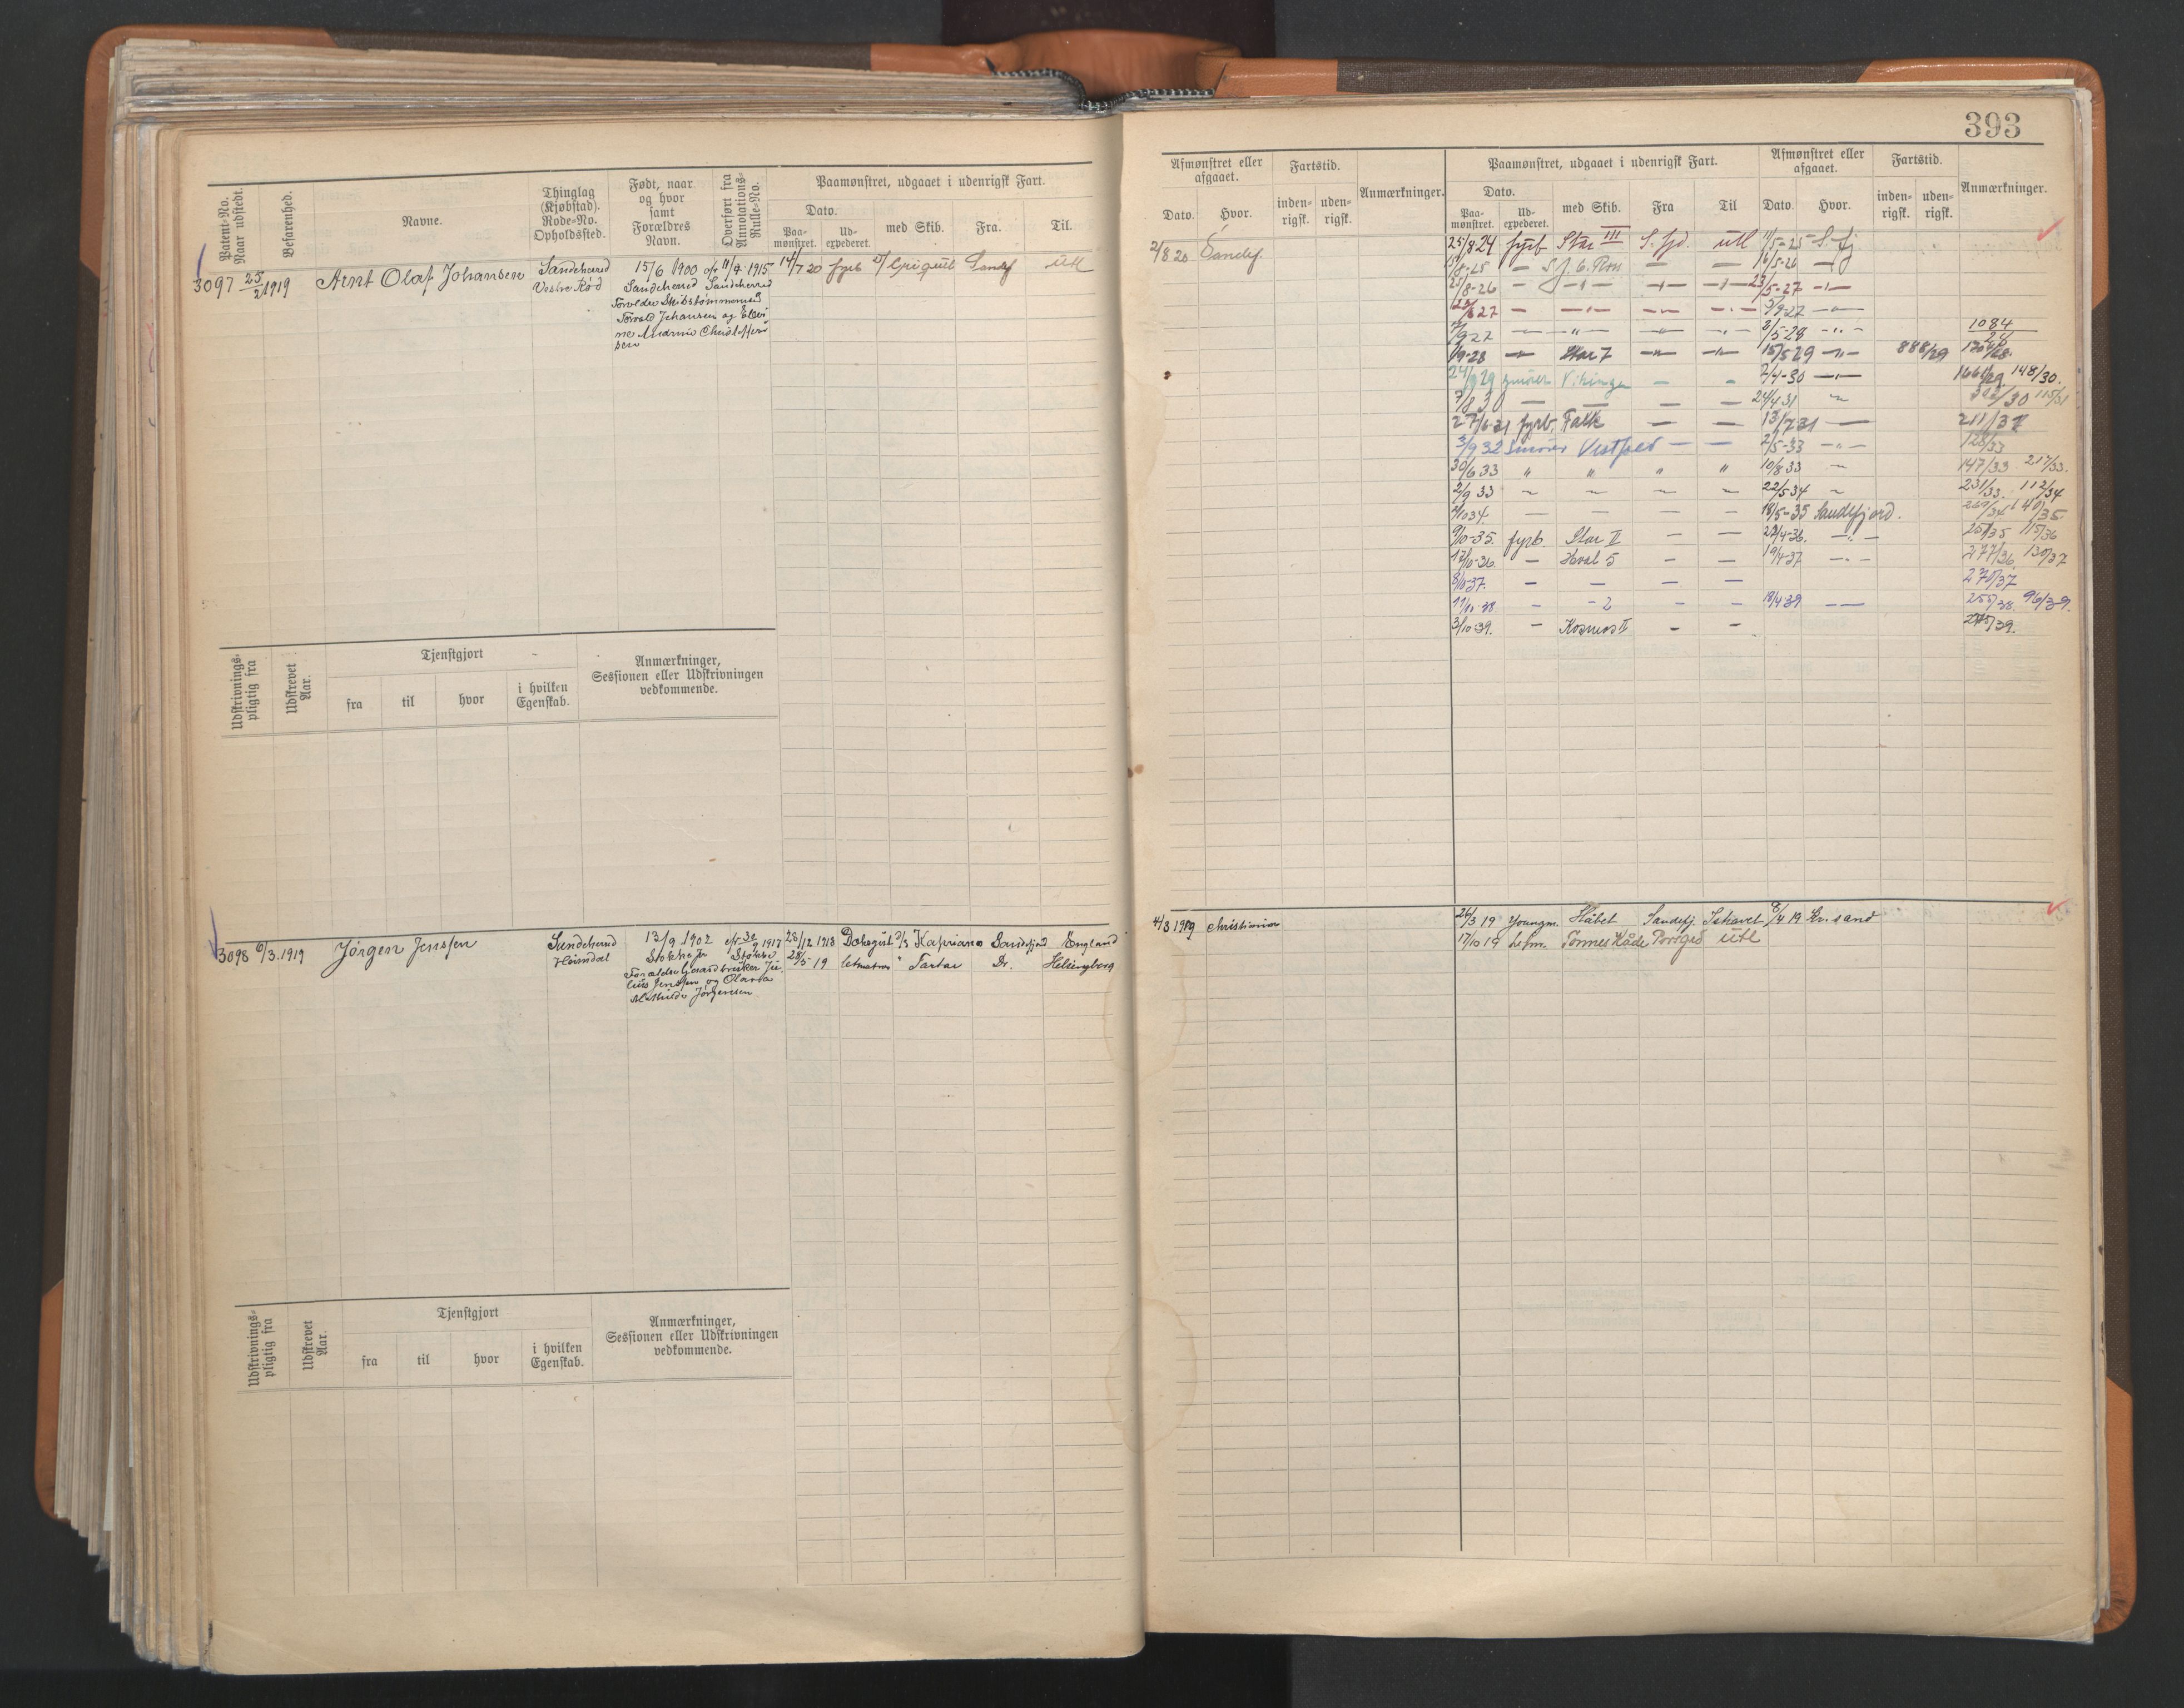 393
Patent-No. Naar udstedt.
Befarenhed.
Navne.
Thinglag (Kjøbstad). Rode-No. Opholdssted.
Født, naar og hvor samt Forældres Navn.
Overført fra Annotations-Rulle-No.
Paamønstret, udgaaet i udenrigsk Fart.
Dato.
Paa-mønstret.
Ud-expederet.
med Skib.
Fra.
Til.
3097 25/2 1919 Arnt Olaf Johansen Sandeherred 15/6 1900 o/o 11/4 1915 14/7 20 fyrb Sandef utl
Vestre Rød Sandeherred Sandeherred
Torvald Johansen og
Udskrivnings-pligtig fra
Udskrevet Aar.
Tjenstgjort
fra
til
hvor
i hvilken Egenskab.
Anmærkninger, Sessionen eller Udskrivningen vedkommende.
3098 6/3 1919 Jørgen Jenssen Sandeherred 13/9 1902 30/9 1917 28/12 1918 Dæksgut Kapriano Sandefjord England
Heimdal Stokke Jr Stokke 28/5 19 letmatros " Tartar Do. Helsingborg
lius Jenssen og Olava
Mathilde Jørgensen
Udskrivnings-pligtig fra
Udskrevet Aar.
Tjenstgjort
fra
til
hvor
i hvilken Egenskab.
Anmærkninger, Sessionen eller Udskrivningen vedkommende.
Afmønstret eller afgaaet.
Fartstid.
Anmærkninger.
Paamønstret, udgaaet i udenrigsk Fart.
Afmønstret eller afgaaet.
Fartstid.
Anmærkninger.
Dato.
Hvor.
inden-rigsk.
uden-rigsk.
Dato.
Paa-mønstret.
Ud-expederet.
med Skib.
Fra
Til
Dato.
Hvor.
inden-rigsk.
uden-rigsk.
2/8 20 Sandef.
25/8 24 fyrb Star III S. fjd. utl 11/5-25 S. fj
/8-25 — S. J. C. Ross — — 16/5-26 —
25/8-26 — — — — 23/5-27 —
27 — — — — /9-27 —
/9 27 — — — — 8/5-28 — 1084/28
/9-28 — Star 7 — — 15/5 29 — 888/29
24/9 29 smører Vikingen — — 2/4-30 — 166/29 148/30.
7/8 30 — — — — 24/4 31 — /30 115/31
27/6-31 fyrb. Falk — — 13/7 31 — 211/31
3/9 32 Smører Vestfold — — 2/5-33 — 128/33
30/6 33 " " " " 10/8 33 — 147/33 217/33.
2/9 33 — — — — 22/5 34 — 231/33. 112/34
/10 34. — — — — 18/5-35 Sandefjord. /34 140/35.
9/10-35. fyrb. Star II — — 22/4-36. — 257/35 115/36
12/10-36. — Hval 5 — — 19/4-37 — 277/36. 130/37
8/10-37. — — — — 270/37
11/10-38. — — 2 — — 18/4 39 — 255/38. 96/39.
3/10-39. — Kosmos II — — /39.
4/3 1919 Christiania 26/3 19 Youngm. Håbet Sandefj. Ishavet 8/4 19 Kr.sand
17/10 19 Tønnes Råde Porsgr utl